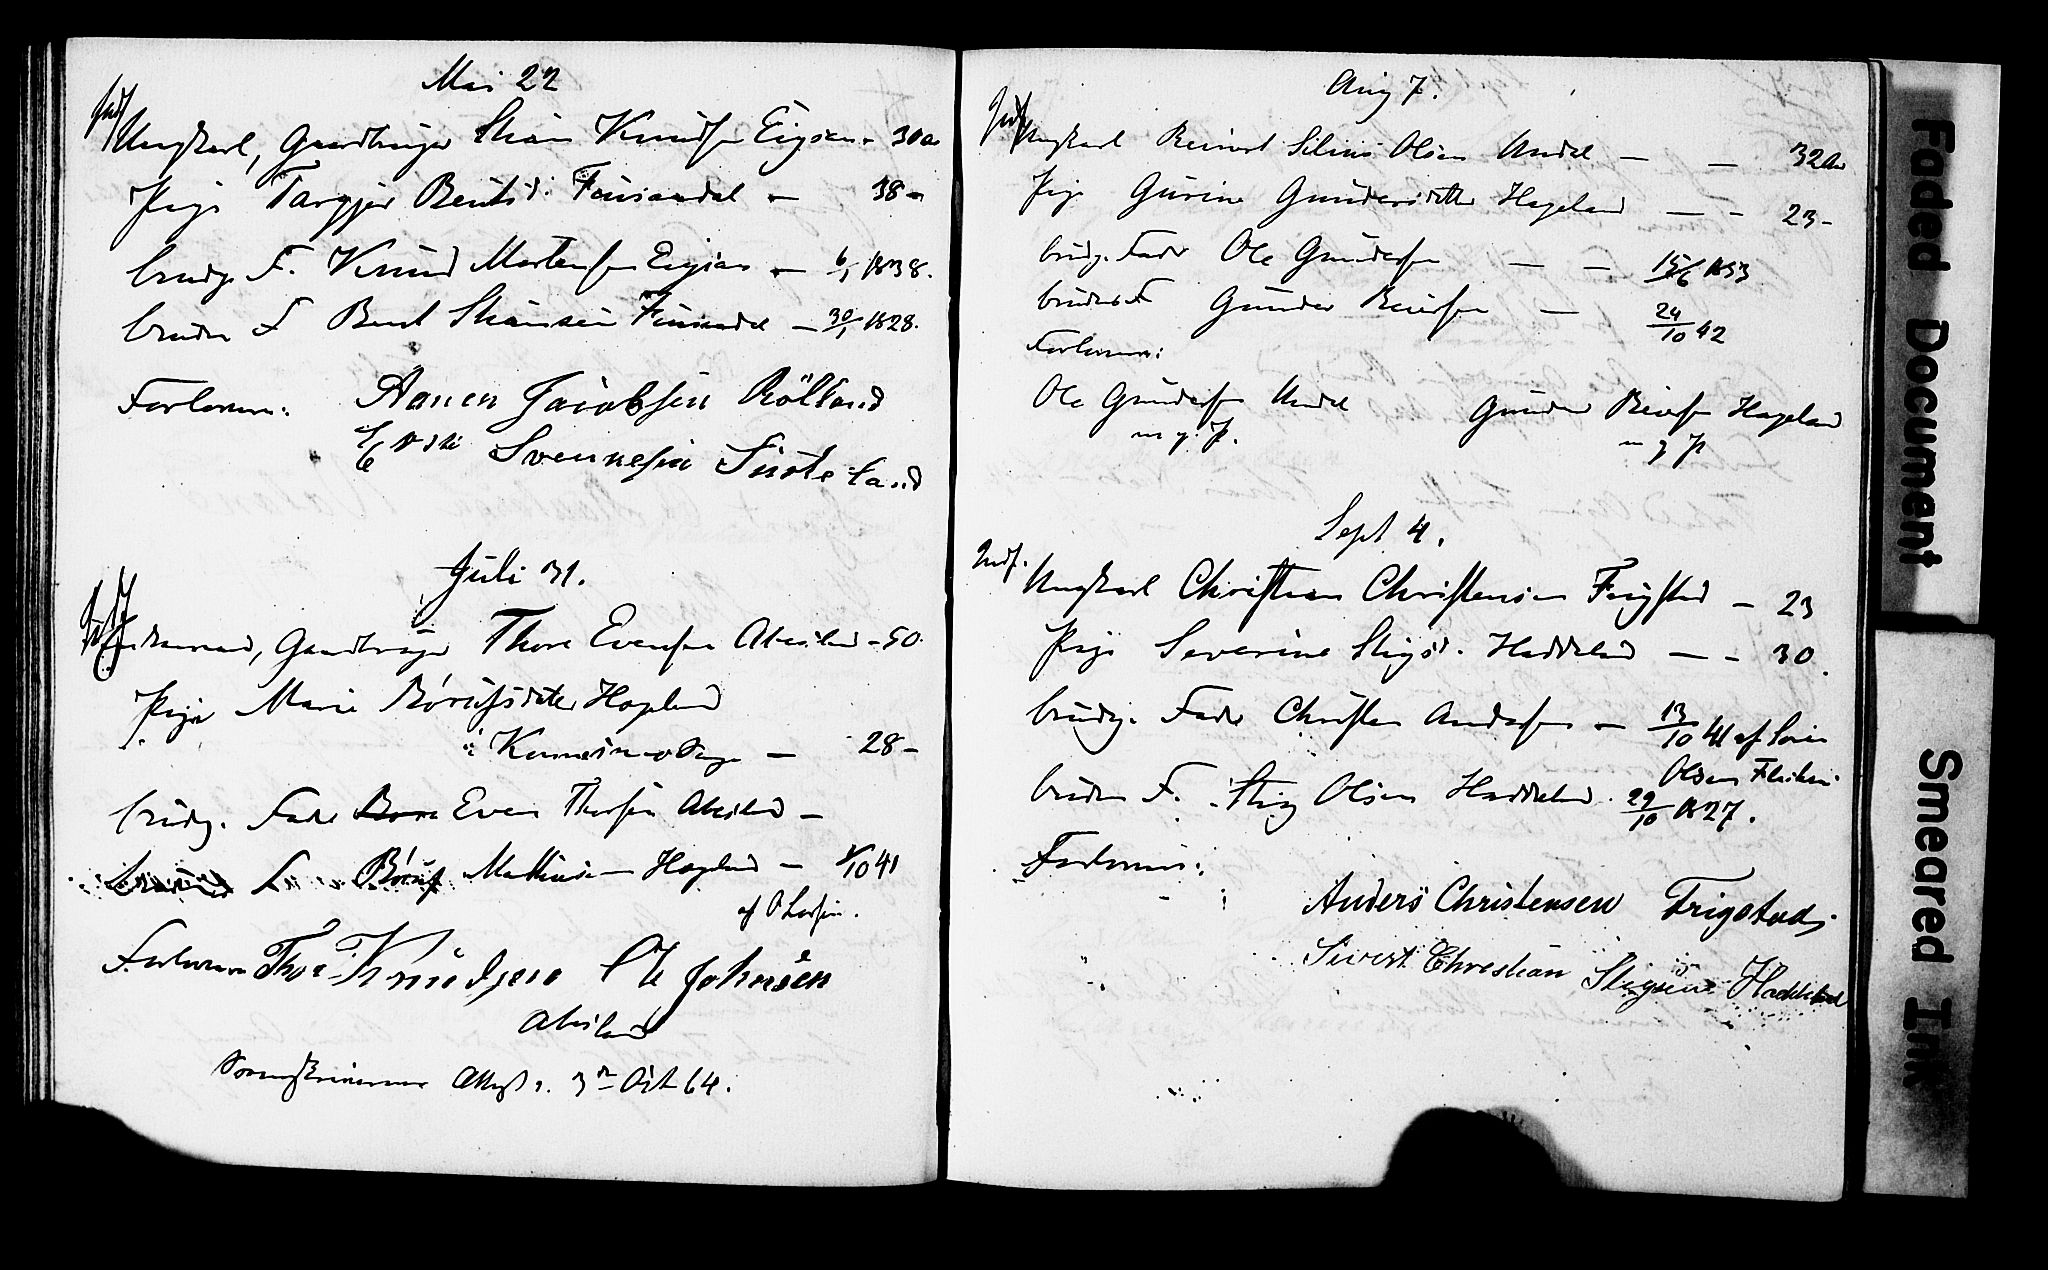 Mai 22
Indf
Ungkarl, Gaardbruger Stian Knudsen Eigsaa - 30 a
Pige Targjer Bentsd. Finsandal - 38 -
brudg. F. Knud Mortensen Eigsaa - 6/1 1838.
bruden F Bent Stiansen Finsandal - 30/1 1828.
Forlovere: Aanen Jacobsen Røllend
Svennesen Susteland
Juli 31.
Indf
Enkemand, Gaardbruger Thore Evensen Abusland - 50.
Pige Marie Børufsdatter Hageland
- 28 -
brudg. Fader Even Thorsen Abusland -
Børuf Mathiasen Hageland - 1/10 41
af O Larsen.
Forlovere Thore Knudsen Ole Johnsen
Abusland
Sorenskriverens Attest 3 Oct 64.
Aug 7.
Indf
Ungkarl Reinert Silius Olsen Undal - - 32 a
Pige Gurine Gundersdatter Hageland - - 23 -
brudg. Fader Ole Gundersen - - 15/6 1853
brudens F Gunder Reiersen - 24/10 42
Forlovere:
Ole Gundersen Undal Gunder Reiersen Hageland
m. p. P. m p P
Sept 4.
Indf.
Ungkarl Christian Christensen Frigstad - 23
Pige Severine Stigsd. Haddeland - - 30.
brudg. Fader Christen Andersen - 13/10 41 af
Olsen
bruden F. Stig Olsen Haddeland. 29/10 1827.
Forlovere:
Anders Christensen Frigstad.
Sivert Christian Stigsen Haddeland
Faded Document
Smeared Ink